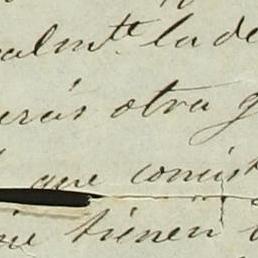 almte la de
erás otra g
que consist
nie tienen